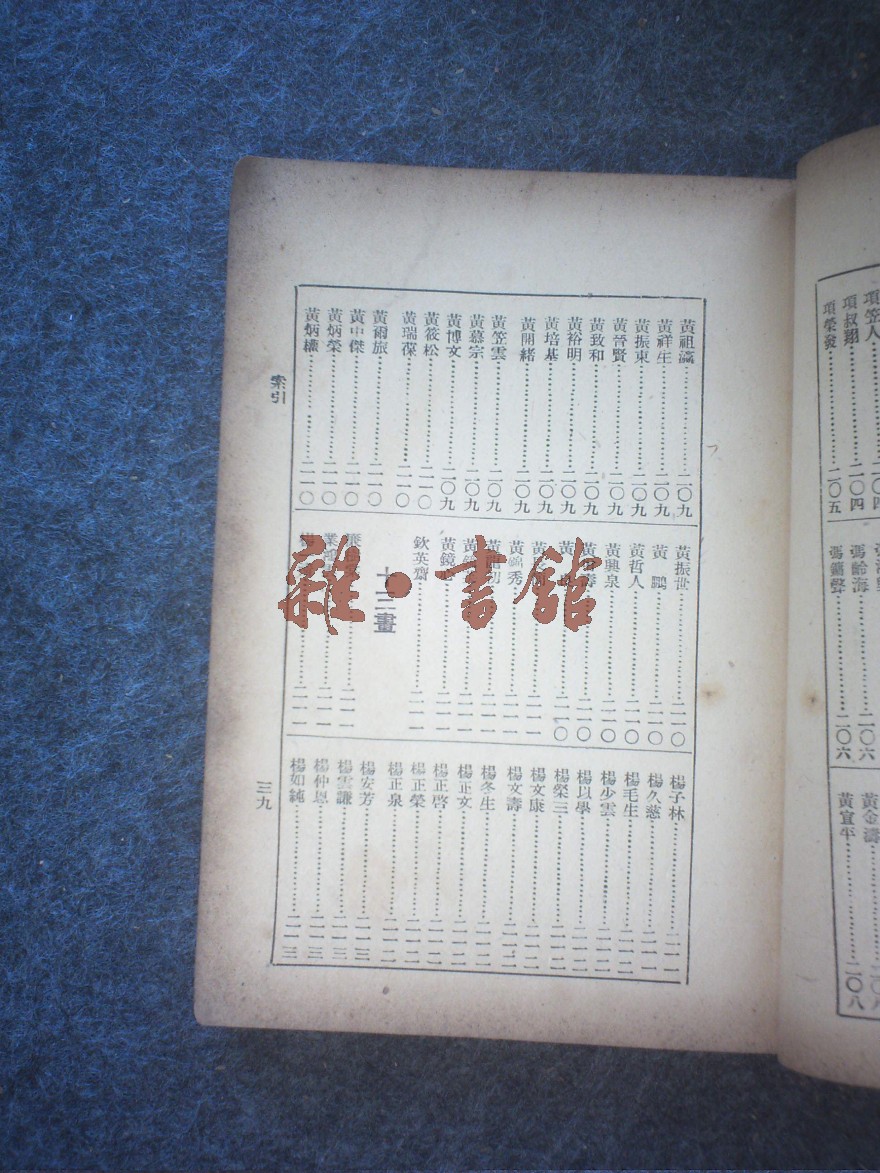 黃祖瀛 二〇九
黃祥生 二〇九
黃振東 二〇九
黃晉賢 二〇九
黃致和 二〇九
黃裕明 二〇九
黃培基 二〇九
黃開緒 二〇九
黃笠雲 二〇九
黃慕宗 二〇九
黃博文 二〇九
黃筱松 二一〇
黃瑞葆 二一〇
黃爾旅 二一〇
黃中傑 二一〇
黃炳榮 二一〇
黃炳 二一〇
黃振世 二一〇
黃鵬 二一〇
黃哲人 二一〇
黃興泉 二一〇
二一〇
黃 二一〇
黃 二一一
黃錦秀 二一一
黃 二一一
黃 二一一
黃鏡 二一一
欽英齋 二一一
十三畫
二一一
業 二一一
二一一
楊子林 二一一
楊久慈 二一一
楊毛生 二一二
楊少雲 二一二
楊以學 二一二
楊榮三 二一二
楊文康 二一二
楊文壽 二一二
楊冬生 二一二
楊正文 二一二
楊正啓 二一二
楊正榮 二一二
楊正泉 二一二
楊安芳 二一三
楊雲謙 二一三
楊仲恩 二一三
楊如純 二一三
索引
三九
雜·書館
項笠人 二〇四
項叔翔 二〇四
項榮發 二〇五
馮齡海 二〇六
馮 二〇六
黃金濤 二〇八
黃宣平 二〇八